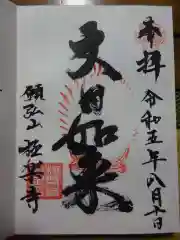 奉拝
令和五年八月十日
大日如来
願弘山
極楽寺